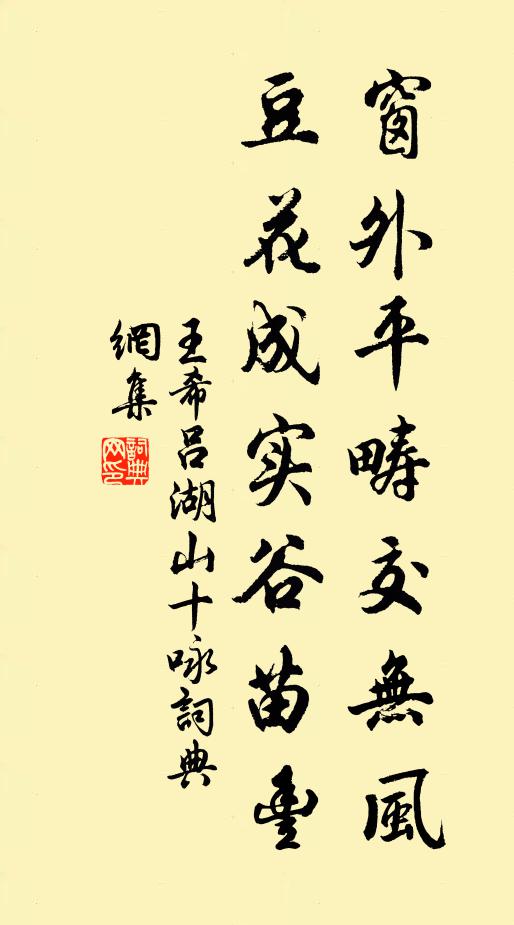 窗外平疇交無風
豆花成实谷苗豊
王希呂湖山十咏詞典
網集
詞典
网印